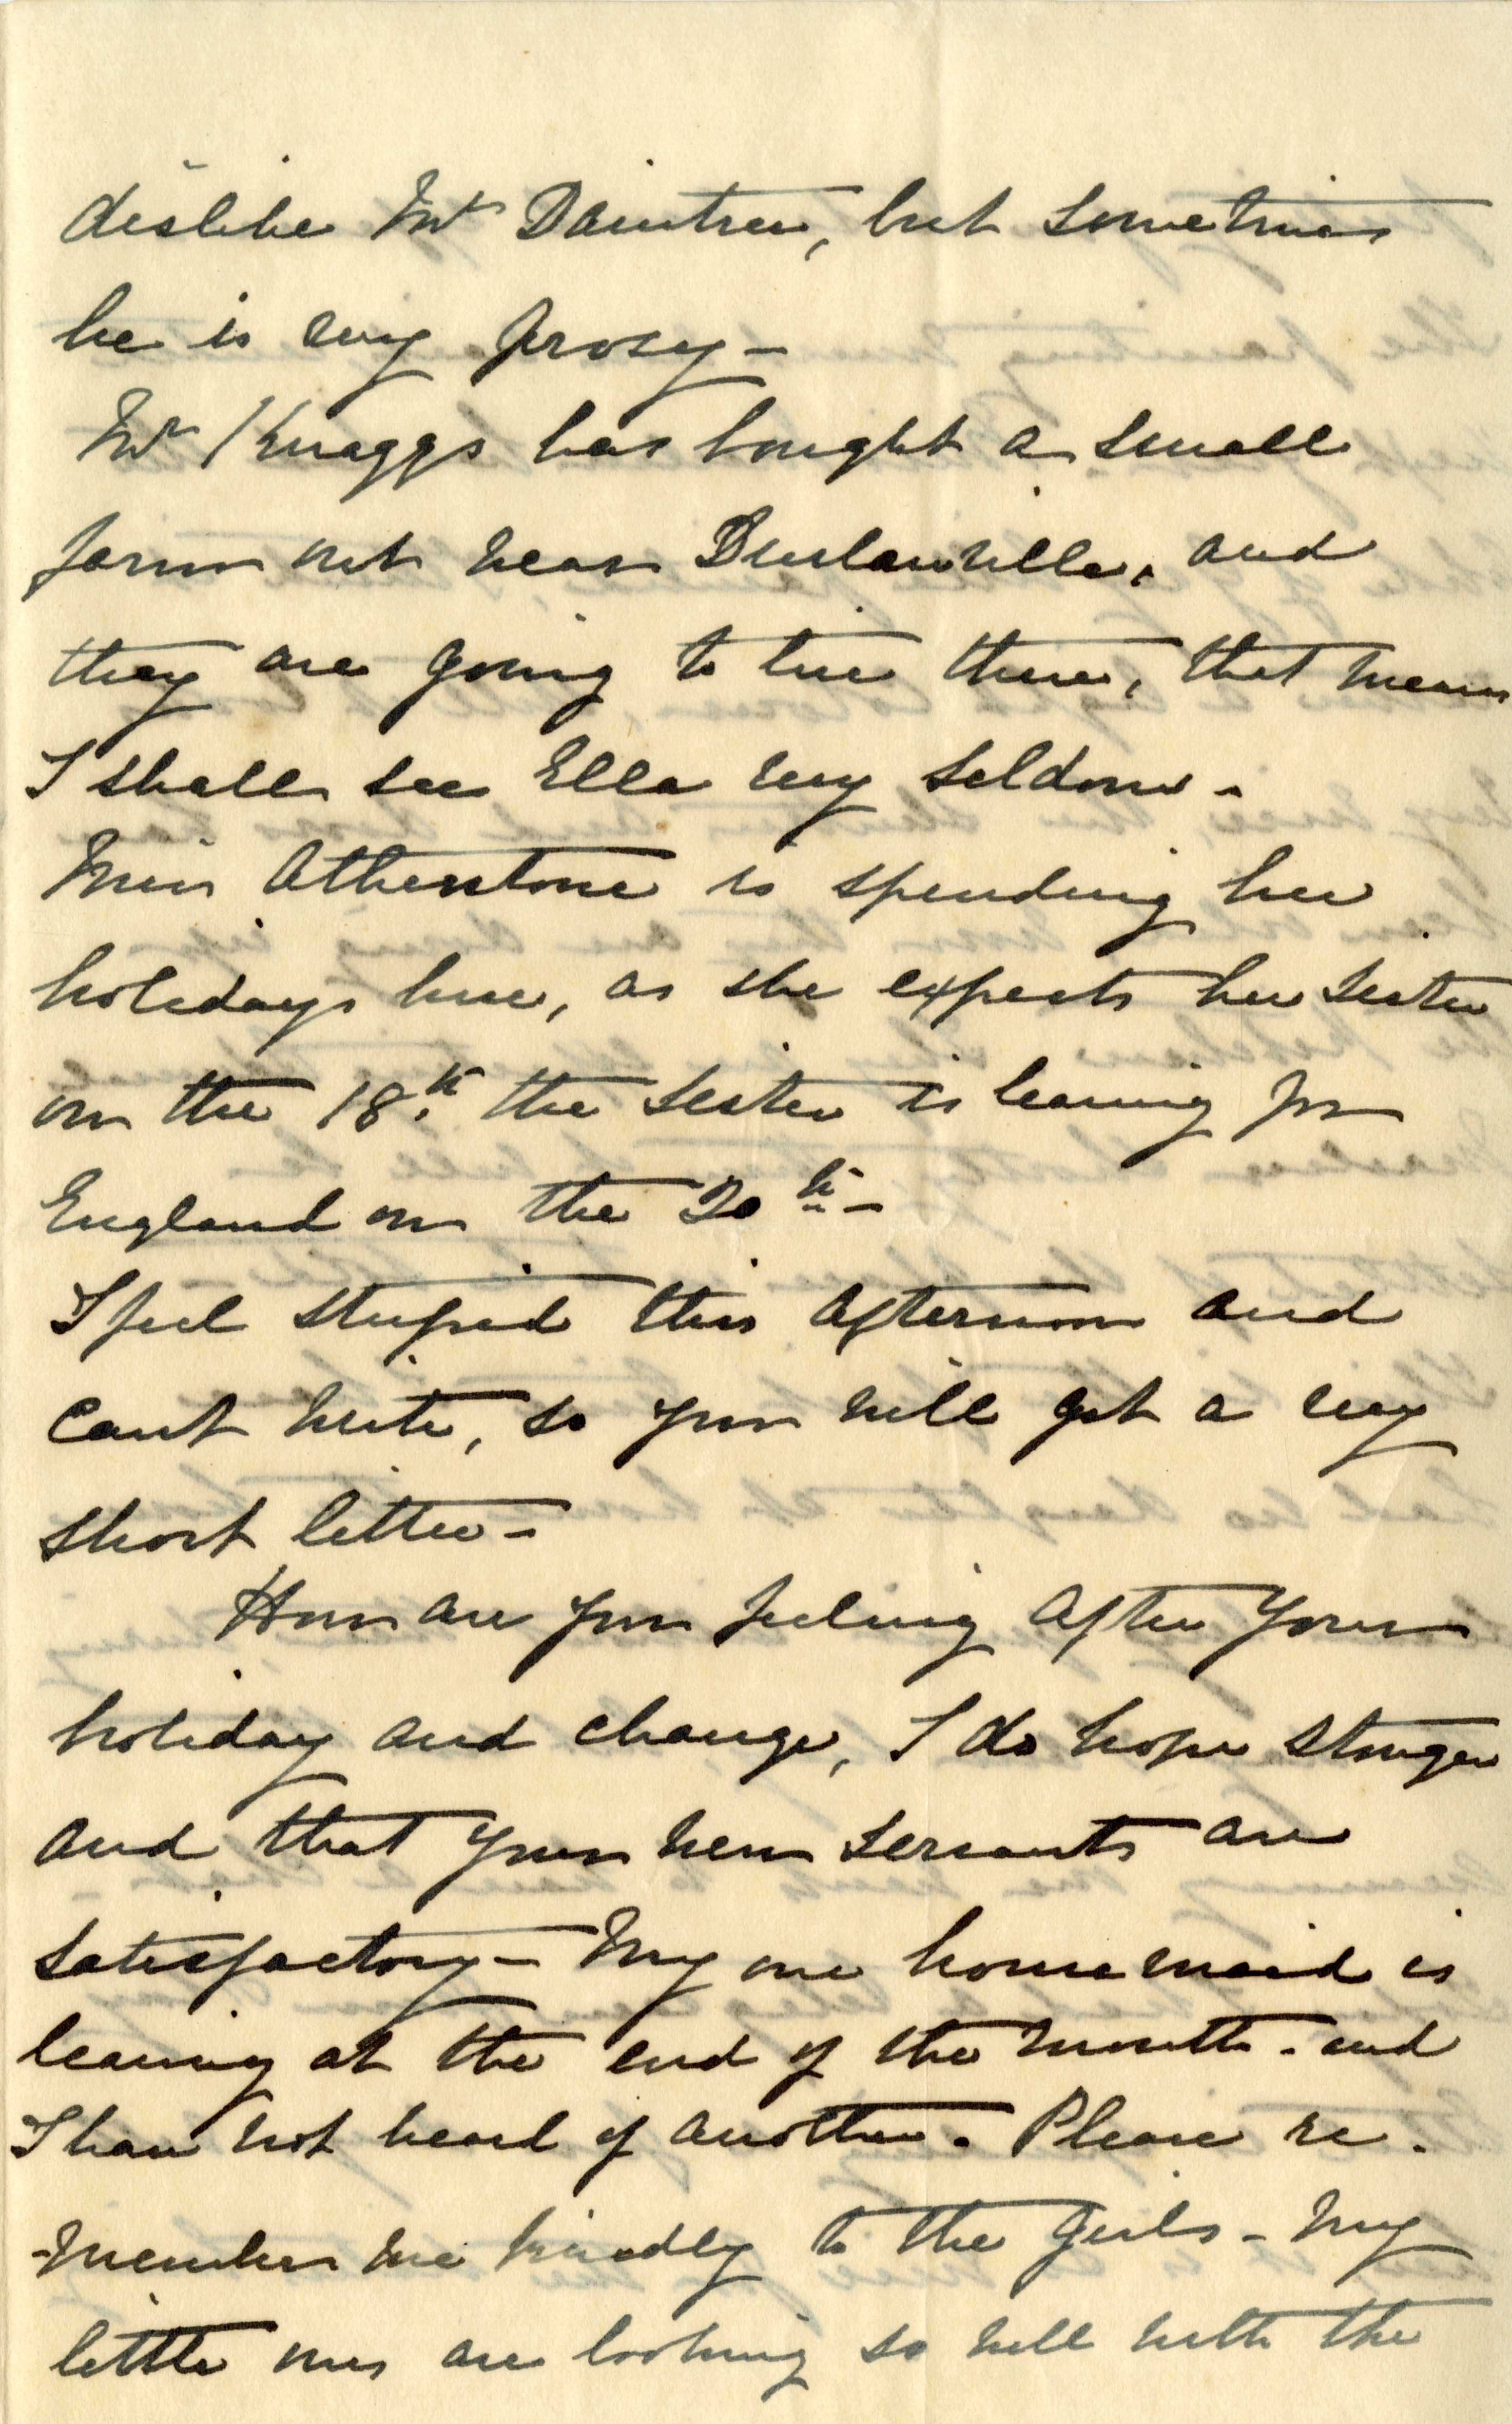 dislike Mr Daintree, but sometimes
he is very prosy –
Mr Knaggs has bought a small
farm out near Durbanville, and
they are going to live there, that means
I shall see Ella very seldom –
Miss Atherstone is spending her
holidays here, as she expects her sister
on the 18th. the sister is leaving for
England on the 20th –
I feel stupid this afternoon and
cant write, so you will get a very
short letter –
How are you feeling after your
holiday and change, I do hope stronger
and that your new servants are
satisfactory – My one housemaid is
leaving at the end of the month. and
I have not heard of another. Please re-
-member me kindly to the girls – My
little ones are looking so well with the